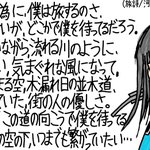 (旅詩/
為に、僕は旅するのさ。
いが、どこかで僕を待ってるだろう。
ながら流れる川のように、
い、気まぐれな風になって。
る空、木漏れ日の並木道、
ていた、街の人の優しさ。
この道の向こうで僕を待ってる
の空の下、いまでも繋がっていたい…